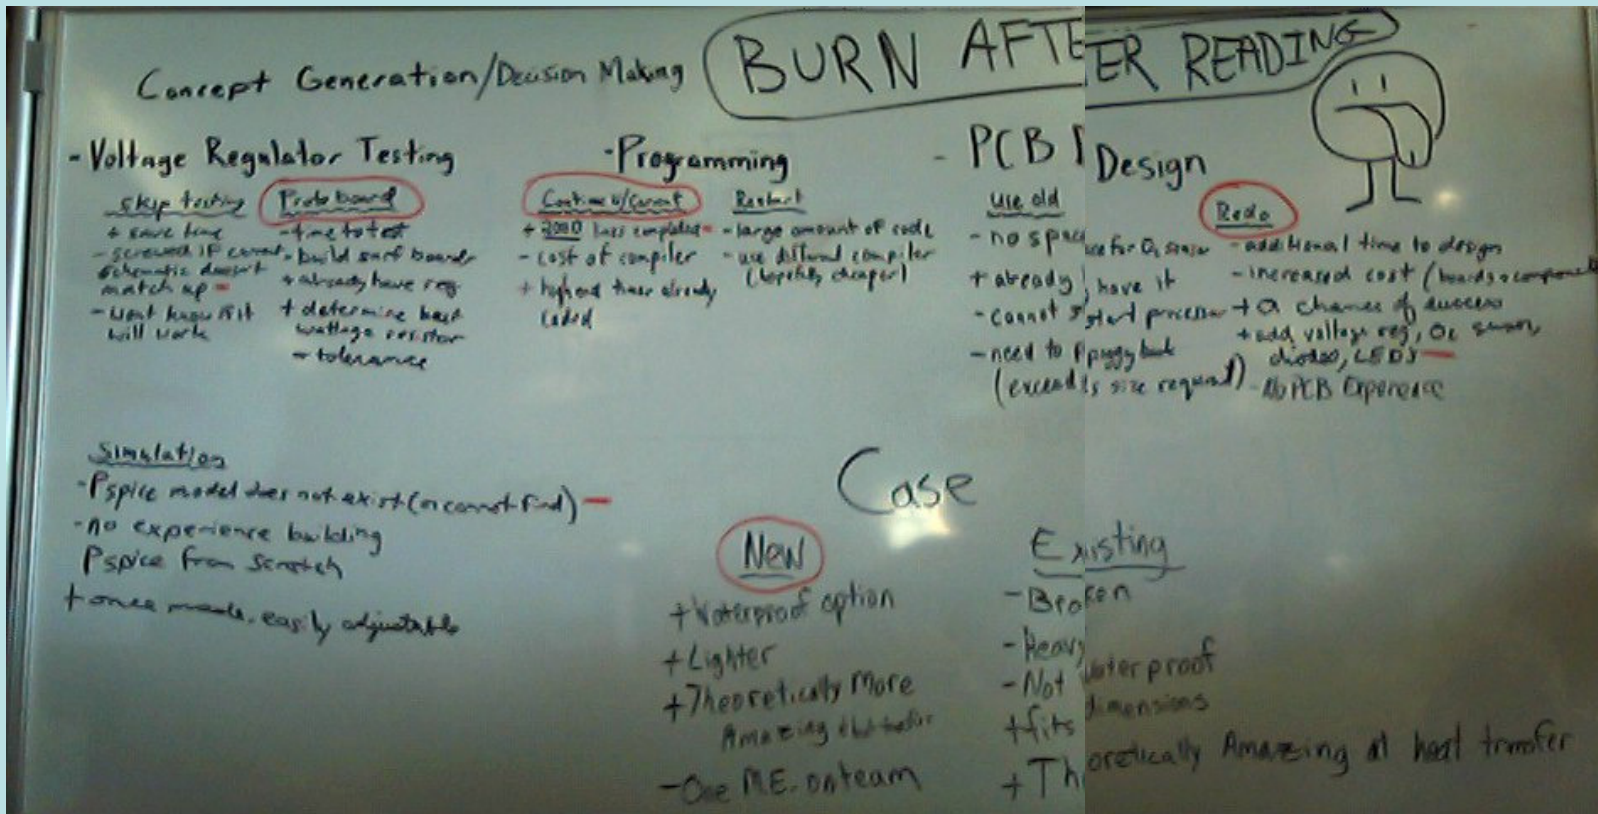 Concept Generation/Decision Making
BURN AFTER READING
- Voltage Regulator Testing
Skip testing
+ save time
- screwed if current
schematic doesn't
match up -
- Wont know if it
will work
Proto board
- time to test
- build surf boards
+ already have reg
+ determine best
wattage resistor
tolerance
- Programming
Continue w/Current
+ 3000 lines completed
- cost of compiler
+ highend timer already
coded
Restart
- large amount of code
- use different compiler
(hopefully cheaper)
- PCB Design
use old
- no space for O₂ sensor
+ already have it
- cannot start processor
- need to piggy back
(exceeds size requirmt)
Redo
- additional time to design
- increased cost (boards + components
+ a chance of success
+ add voltage reg, O₂ sensor,
diodes, LEDs
- No PCB Experience
Simulation
- Pspice model does not exist (or cannot find) -
- no experience building
Pspice from scratch
+ once made, easily adjustable
Case
New
+ Waterproof option
+ Lighter
+ Theoretically More
Amazing
- One M.E. on team
Existing
- Broken
- Heavy
- Not waterproof
+ fits dimensions
+ Theoretically Amazing at heat transfer